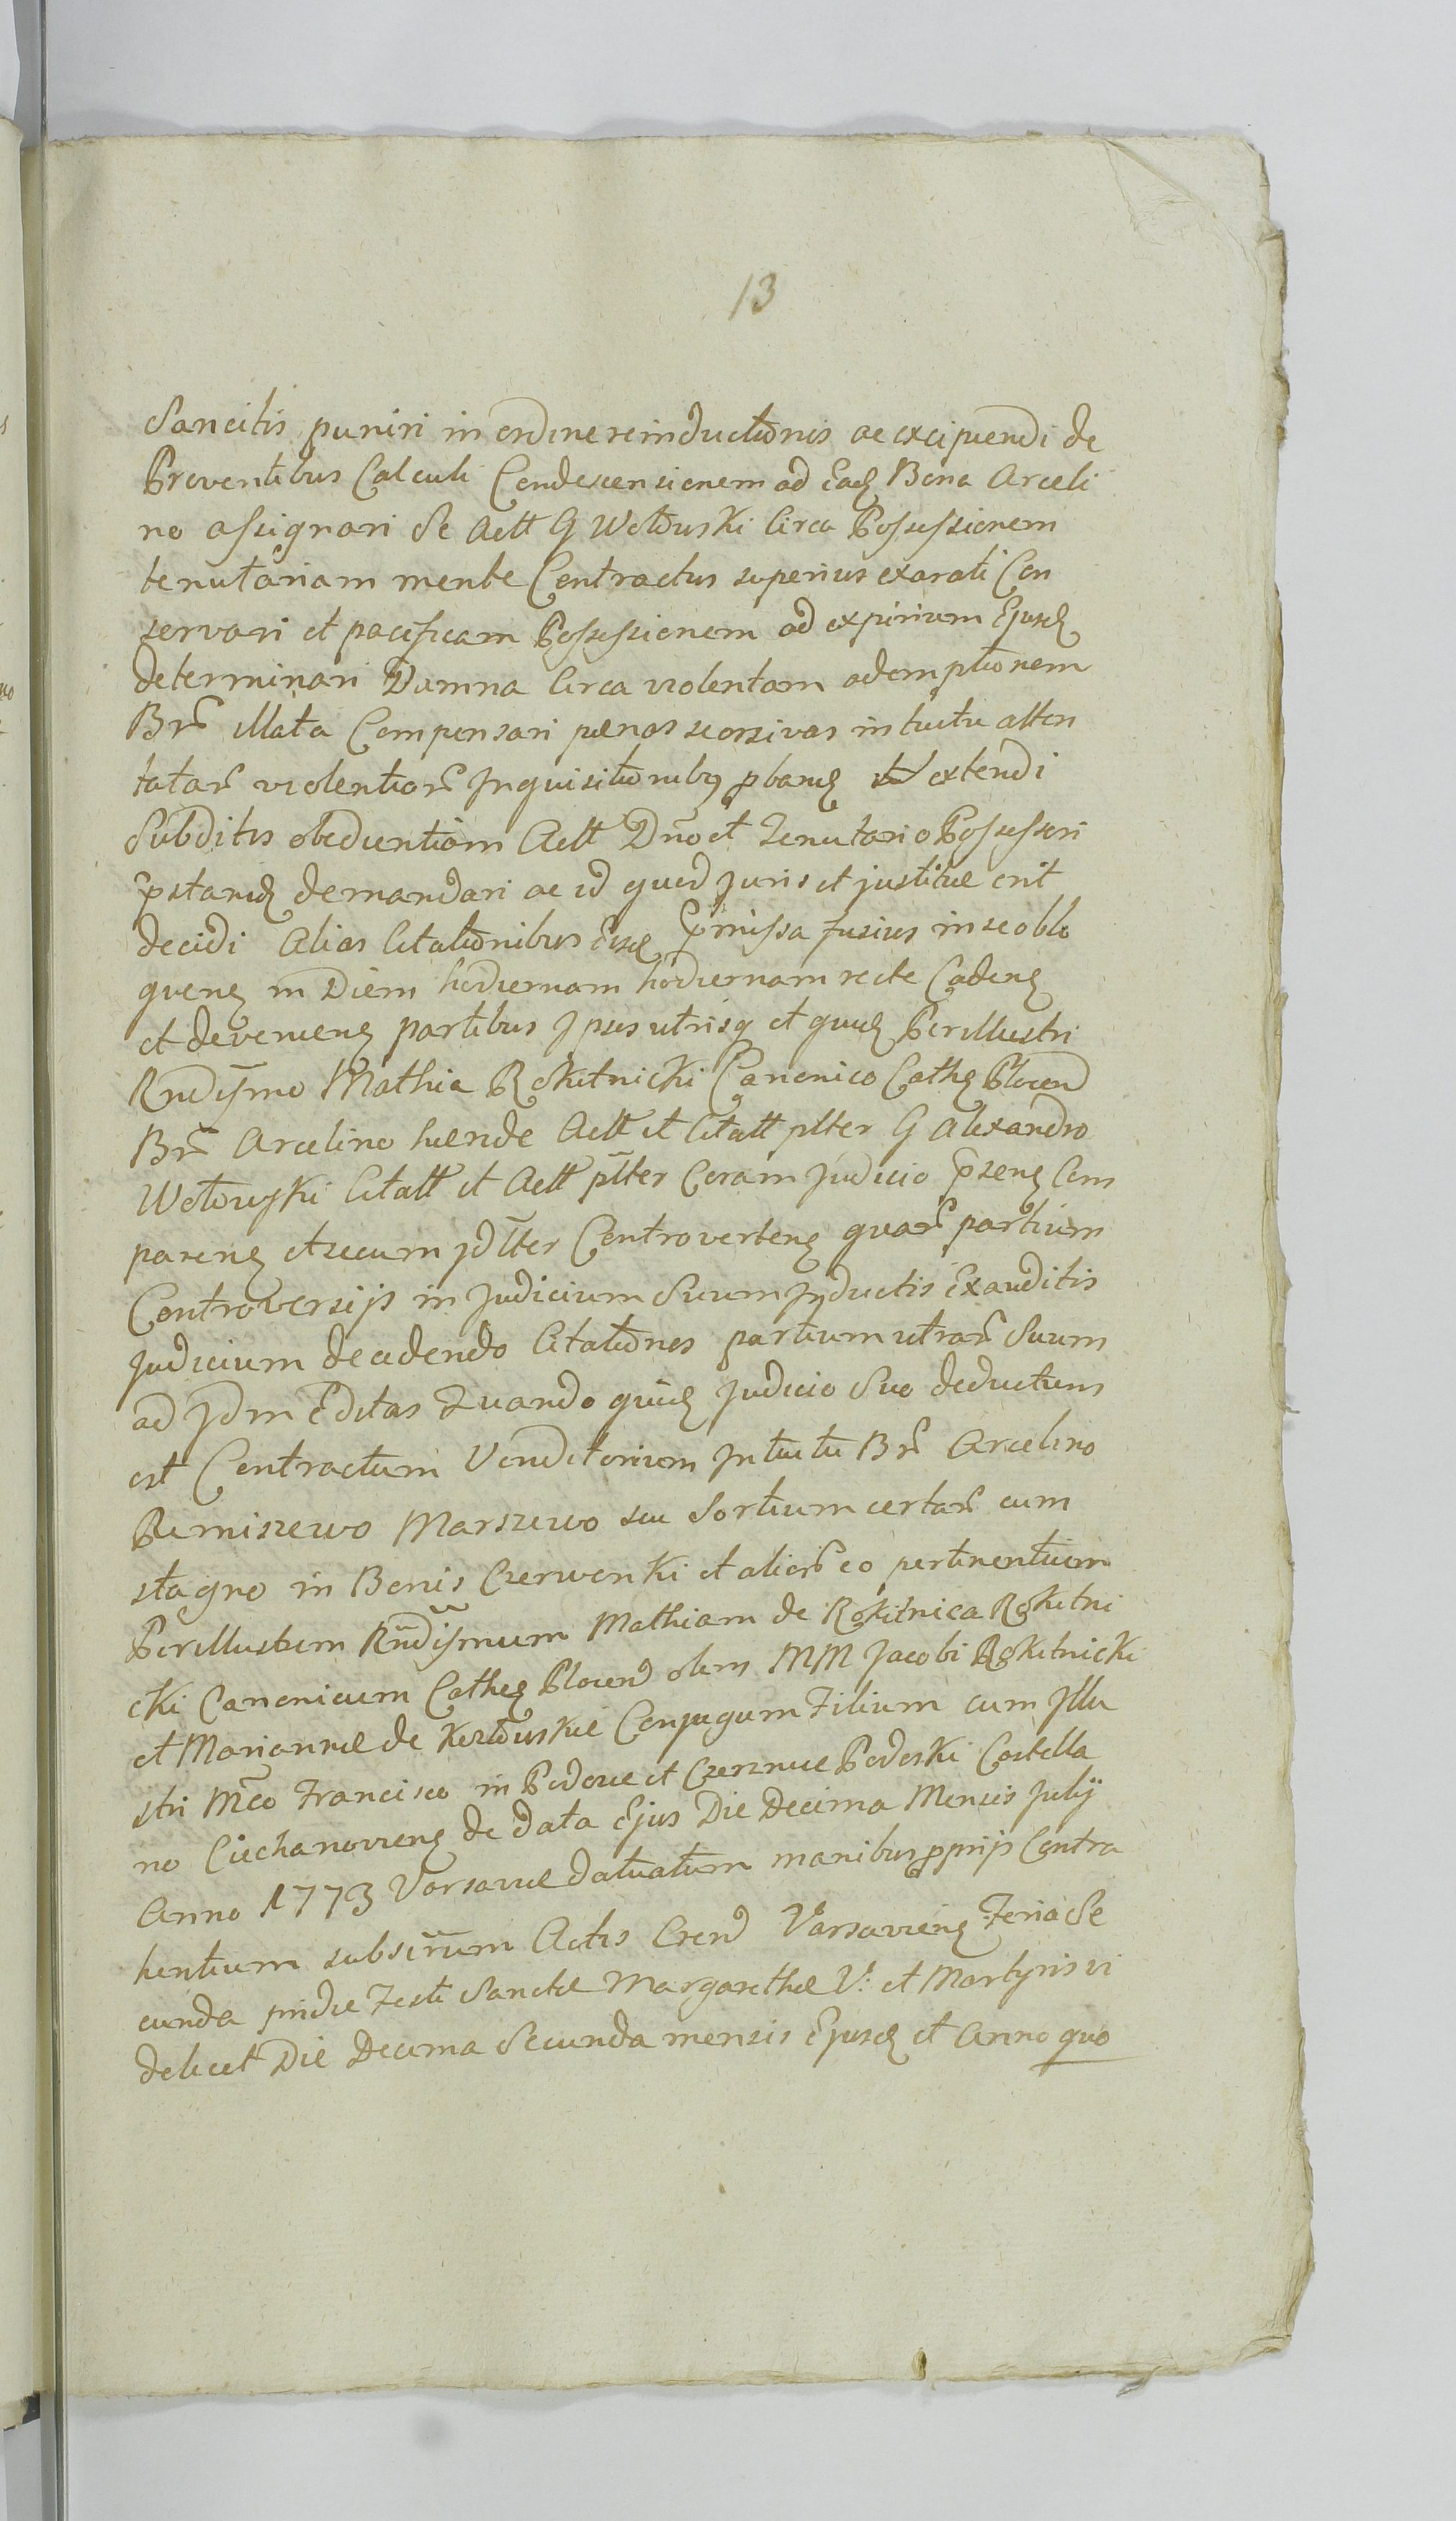 13
Sancitis puniri in ordine reinductionis ac excipiendi de
Proventibus Calculi Condescensionem ad Eadę Bona Arceli
no assignari Se Actt G Wołowski Circa Possessionem
tenutariam mente Contractus superius exarati Con
servari et pacificam Possessionem ad expirium Ejusdę
determinari Damna Circa violentam ademptionem
Brũ illata Compensari pænas seorsivas intuitu atten
tatarũ violentiarũ Inquisitionibꝰ pbandę et extendi
Subditis obedientiam Actt Dño et Tenutario Possessori
pstandę demandari ac id quod juris et justitiæ erit
decidi Alias Citationibus Eisdę pmissa fusius in se oblo
quenę in Diem hodiernam hodiernam recte Cadenę
et devenienę partibus Ipsis utrisq et quidę Perillustri
Rndissmo Mathia Rokitnicki Canonico Cathę Plocen
Brũ Arcelino hærede Actt et Citatt plter G Alexandro
Wołowski Citatt et Actt plter Coram Judicio pzenę Com
parenę et secum Idlter Controvertenę quarũ partium
Controversijs in Judicium Suum Inductis Exauditis
Judicium decidendo Citationes partium utrarũ Suum
ad Idm Editas Quando quidę Judicio Suo deductum
est Contractum Venditorium Intuitu Brũ Arcelino
Remiszewo Marszewo seu Sortium certarũ cum
stagno in Bonis Czerwonki et aliorũ eo pertinentium
Perillustrem Rñdissmum Mathiam de Rokitnica Rokitni
cki Canonicum Cathę Plocen olim MM Jacobi Rokitnicki
et Mariannæ de Kozłowskie Conjugum Filium cum Illu
stri Mco Francisco in Podosie et Czernice Podoski Castella
no Ciechanovienę de data Ejus Die Decima Mensis Julij
Anno 1773 Varsaviæ datuatum manibus pprijs Contra
hentium subscrũm Actis Cren Varsavienę Feria Se
cunda pridie Festi Sanctæ Margarethæ V: et Martyris vi
delicet Die Decima Secunda mensis Ejusdę et Anno quo